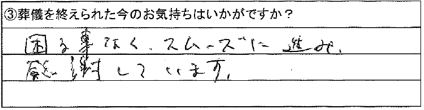 ③葬儀を終えられた今のお気持ちはいかがですか?
困る事なく、スムーズに進み、
感謝しています。